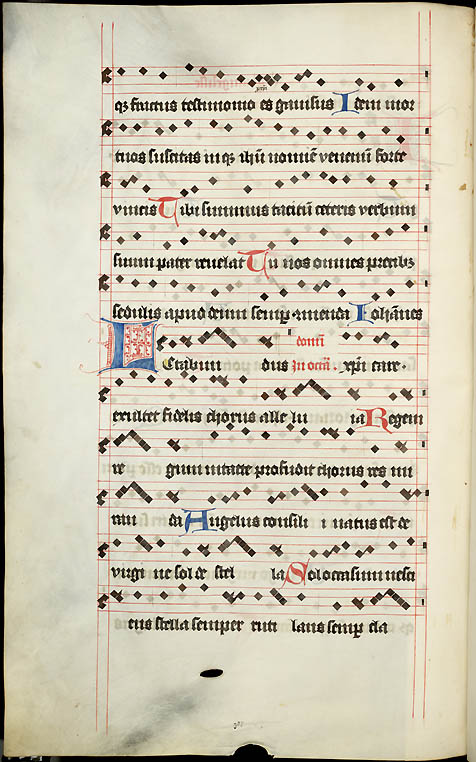 qz fructus testimonio es gauisus Idem mor
tuos suscitas inqz ihu nomie venenu forte
vincis Tibi summus tacitu ceteris verbum
suum pater reuelat Tu nos omnes precibz
sedulis apud deum semp comenda Iohannes
domi
Letabun dus In octa. xpi care.
exultet fidelis chorus alle lu ia Regem
re gum intacte profudit thorus res mi
ran da Angelus consili i natus est de
virgi ne sol de stel la Sol occasum nesci
ens stella semper ruti lans semp cla